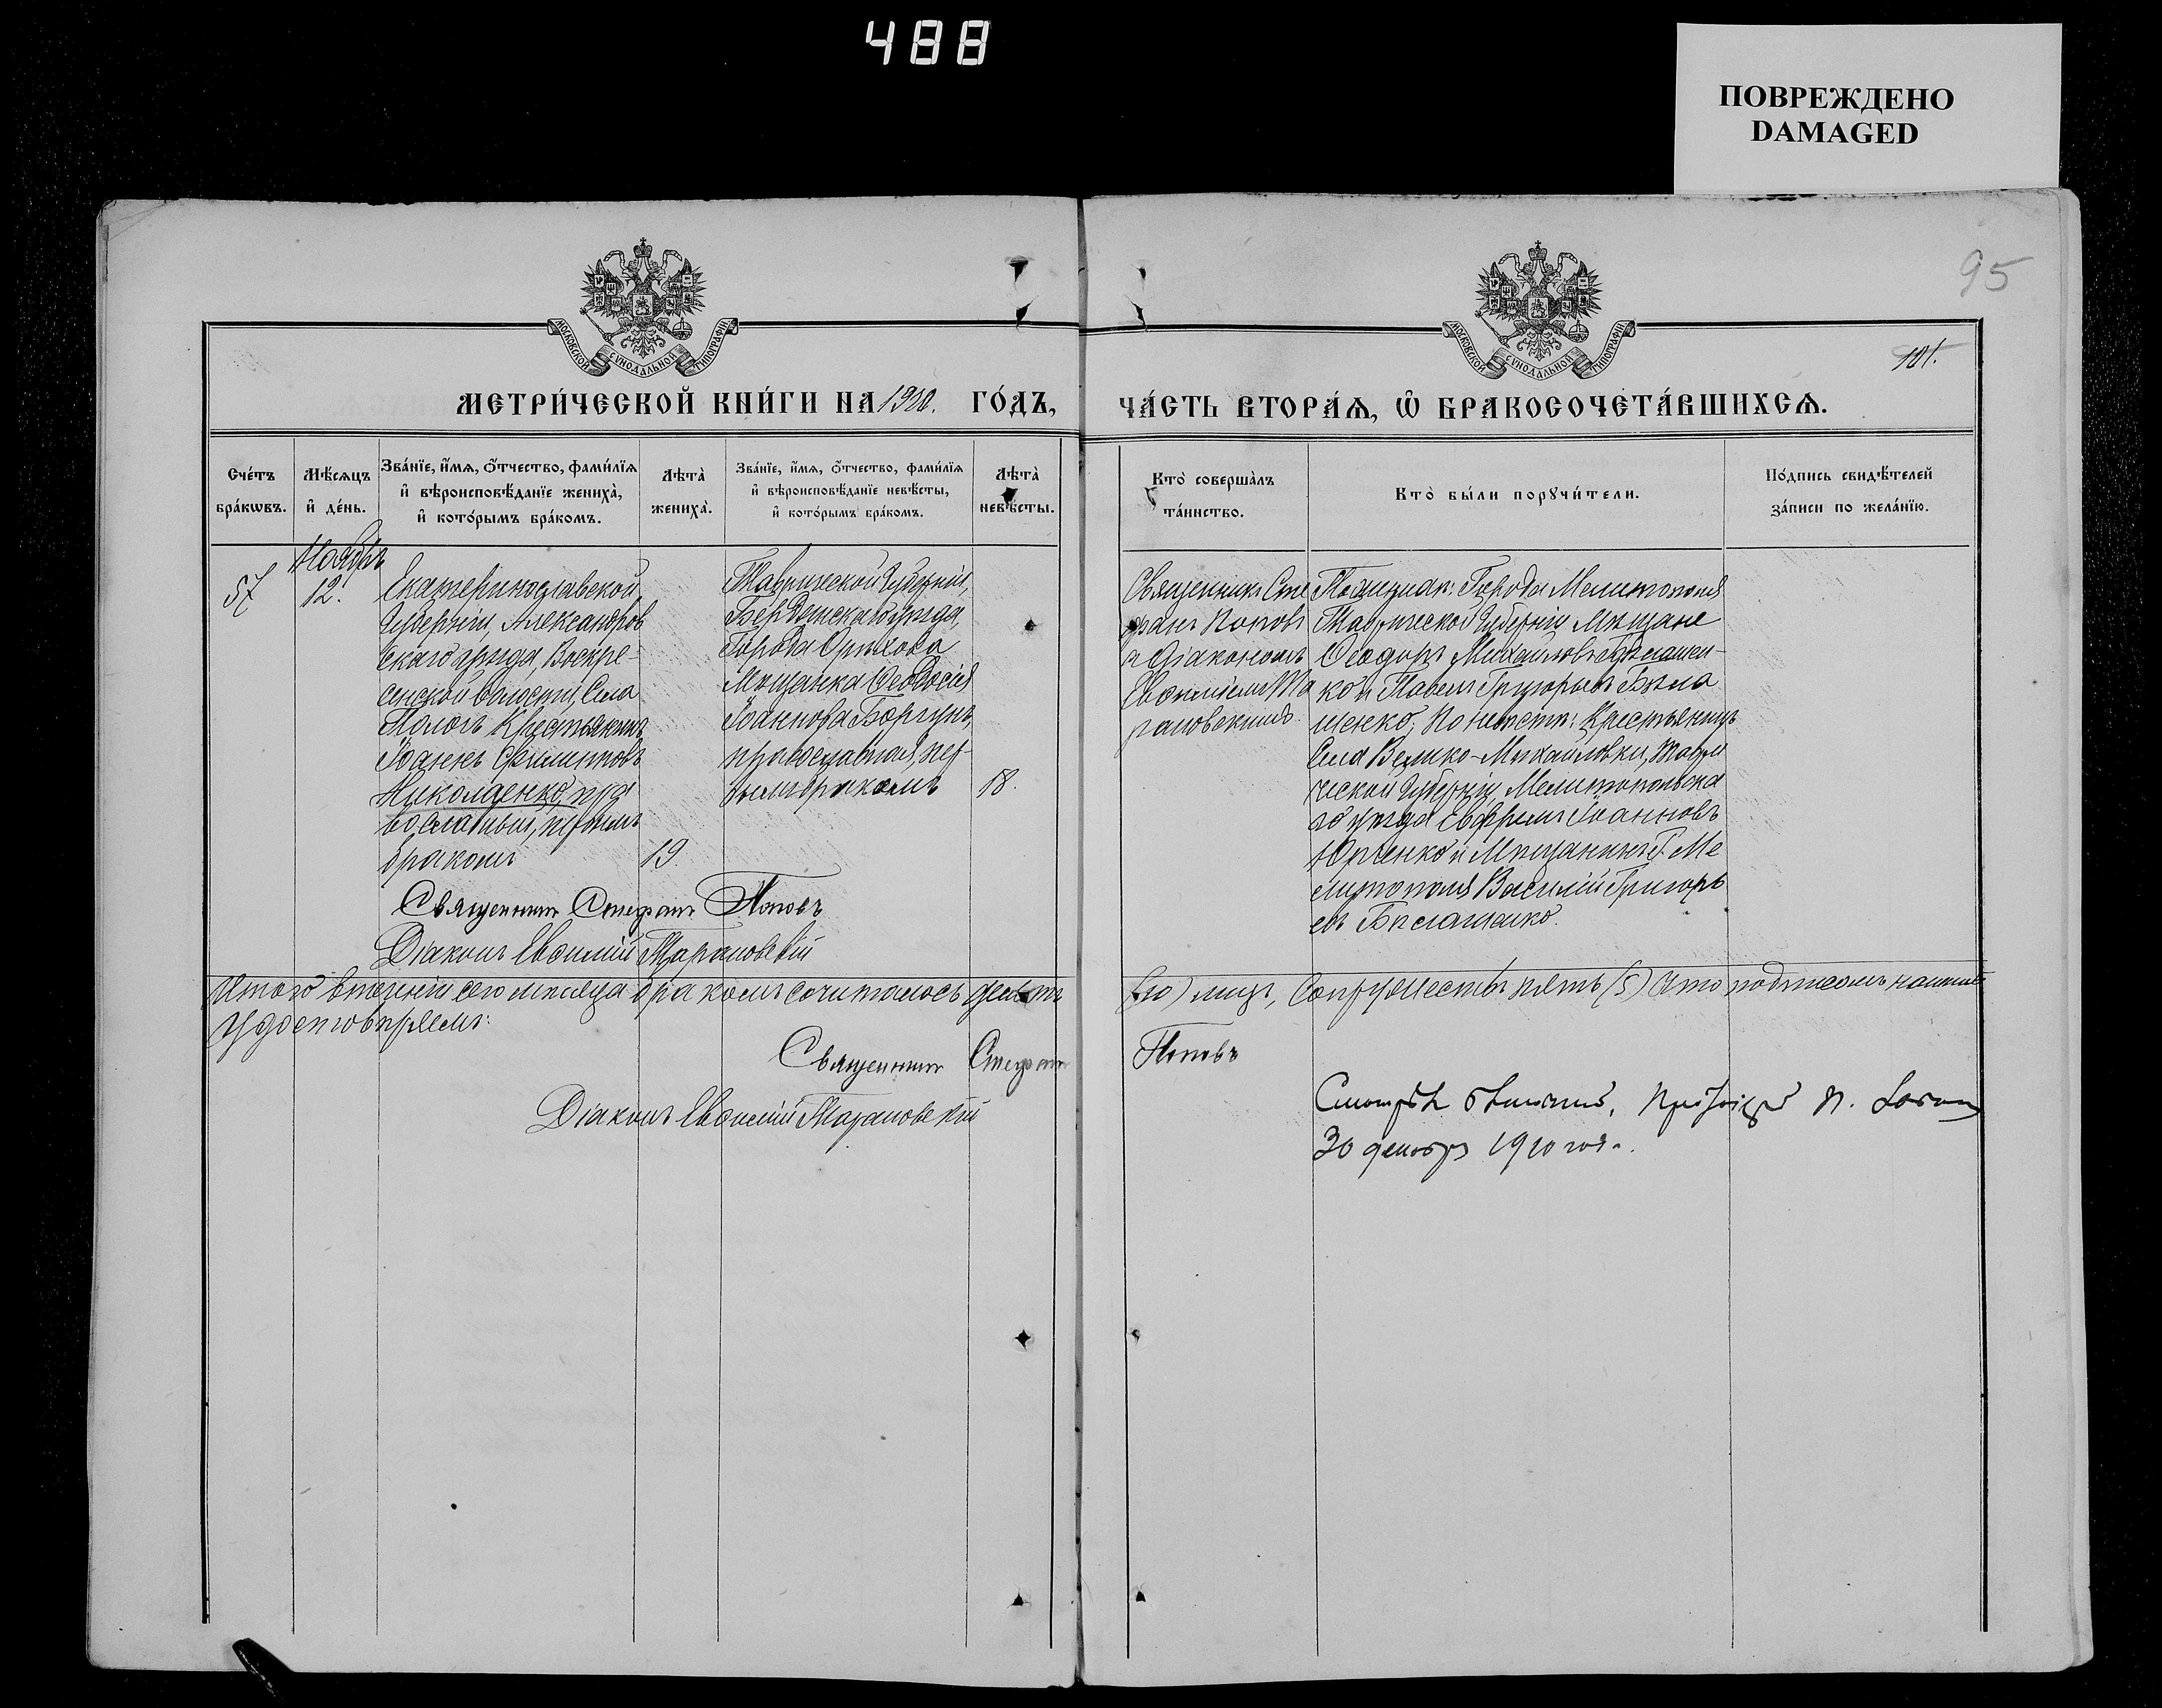 488
ПОВРЕЖДЕНО
DAMAGED
95
МОСКОВСКОЙ СѴНОДАЛЬНОЙ ТИПОГРАФІИ
МОСКОВСКОЙ СѴНОДАЛЬНОЙ ТИПОГРАФІИ
101.
МЕТРИ́ЧЕСКОЙ КНИ́ГИ НА 1910. ГО́ДЪ,
ЧА́СТЬ ВТОРА́Ѧ, Ѡ҆ БРАКОСОЧЕТА́ВШИХСѦ.
Сче́тъ
бра́кѡвъ.
Мѣ́сяцъ
и҆ де́нь.
Зва́нїе, и҆́мѧ, ѻ҆́тчество, фами́лїѧ
и҆ вѣроисповѣ́данїе жениха̀,
и҆ кото́рымъ бра́комъ.
Лѣта̀
жениха̀.
Зва́нїе, и҆́мѧ, ѻ҆́тчество, фами́лїѧ
и҆ вѣроисповѣ́данїе невѣ́сты,
и҆ кото́рымъ бра́комъ.
Лѣта̀
невѣ́сты.
Кто̀ соверша̀лъ
та́инство.
Кто̀ бы́ли порꙋчи́тели.
По́дпись свидѣ́телей
за́писи по жела́нїю.
57
Ноябрь
12.
Екатеринославской
Губерніи, Александров
скаго уѣзда, Воскре-
сенской волости, Села
Пологъ Крестьянинъ
Іоаннъ Филипповъ
Николаенко, пра
вославный, первымъ
бракомъ
19.
Таврической Губерніи,
Бердянскаго уѣзда,
Города Орѣхова
Мѣщанка Ѳеодосія
Іоаннова
православная, пер-
вымъ бракомъ
18.
Священникъ Сте
фанъ Поповъ
съ Діакономъ
Евѳиміемъ Та
рановскимъ
По жениху: Города Мелитополя
Таврической Губерніи Мѣщане
Ѳеодоръ Михайловъ Бѣлашен-
ко и Павелъ Григорьевъ Бѣла
шенко, По невѣстѣ: Крестьянинъ
Села Велико-Михайловки, Таври
ческой Губерніи, Мелитопольска
го уѣзда Ефремъ Іоанновъ
Юрченко и Мѣщанинъ Г. Ме
литополя Василій Григорь
евъ Бѣлашенко.
Священникъ Стефанъ Поповъ
Діаконъ Евѳимій Тарановскій
Итого въ теченіи сего мѣсяца бракомъ сочиталось десять
(10) лицъ, Супружествъ пять (5) Что подписомъ нашимъ
Удостовѣряемъ:
Священникъ Стефанъ
Поповъ
Діаконъ Евѳимій Тарановскій
30 декабря 1910 года.